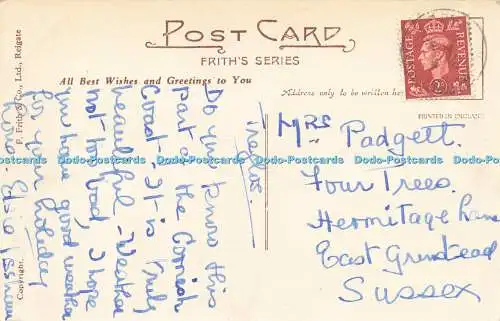 POST CARD
FRITH'S SERIES
All Best Wishes and Greetings to You
Address only to be written here
PRINTED IN ENGLAND
POSTAGE
REVENUE
2D
F. Frith & Co., Ltd., Reigate
Copyright.
Do you know this
part of the Cornish
Coast, It is truly
beautiful - Weather
not too bad, I hope
you have good weather
for your holiday
MRS Padgett.
Four Trees.
Hermitage Lane
East Grinstead
SUSSEX
Dodo-Postcards Dodo-Postcards Dodo-Postcards Dodo-Postcards Dodo-Postcards